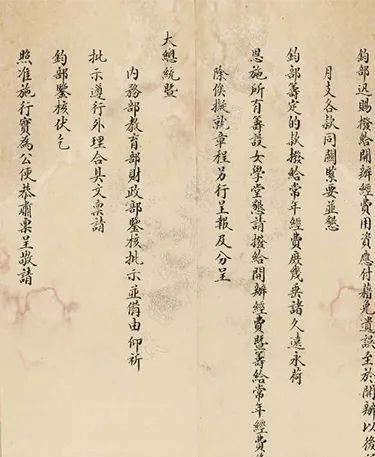 鈞部迅賜撥給開辦經費用資應付藉免遺誤至於開辦以後
月支各款同關緊要並懇
鈞部籌定的款撥給常年經費庶幾垂諸久遠永荷
恩施所有籌設女學堂懇請撥給開辦經費暨籌給常年經費
除俟擬就章程另行呈報及分呈
大總統暨
內務部教育部財政部鑒核批示並備由仰祈
批示遵行外理合具文稟請
鈞部鑒核伏乞
照准施行實為公便恭肅稟呈敬請